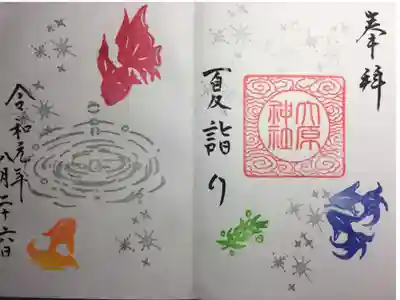 奉拝
夏詣り
大原
神社
令和元年
八月二十六日